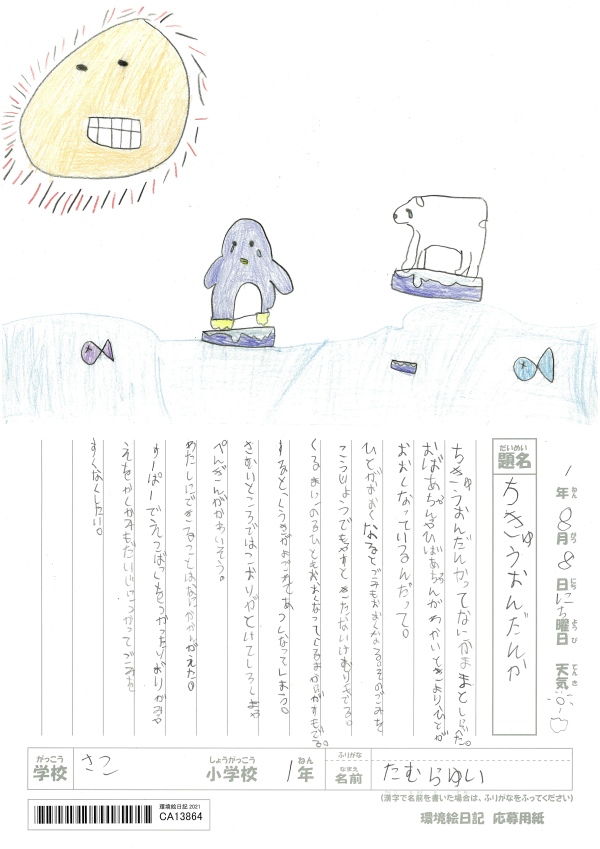 1年8月8日にち曜日 天気
ねん がつ にち ようび てんき
だいめい
題名
ちきゅうおんだんか
ちきゅうおんだんかってなにかままとしらべた。
おばあちゃんやひばあちゃんがわかいときより、ひとが
おおくなっているんだって。
ひとがおおくなるとごみもおおくなる。そのごみを
こうじょうでもやすときたないけむりがでる。
くるまにのるひともおおくなってくるまからのがすもでる。
するとくうきがよごれてあつくなってしまう。
さむいところではこおりがとけてしろくまや
ぺんぎんがかわいそう。
わたしにできることはなにかかんがえた。
すーぱーでえこばっぐをつかったりおりがみ
えをかくかみもだいじにつかってごみを
すくなくしたい。
がっこう
学校
さこ
しょうがっこう
小学校
1年
ねん
ふりがな
なまえ
名前
たむらゆい
(漢字で名前を書いた場合は、ふりがなをふってください)
環境絵日記 2021
CA13864
環境絵日記 応募用紙